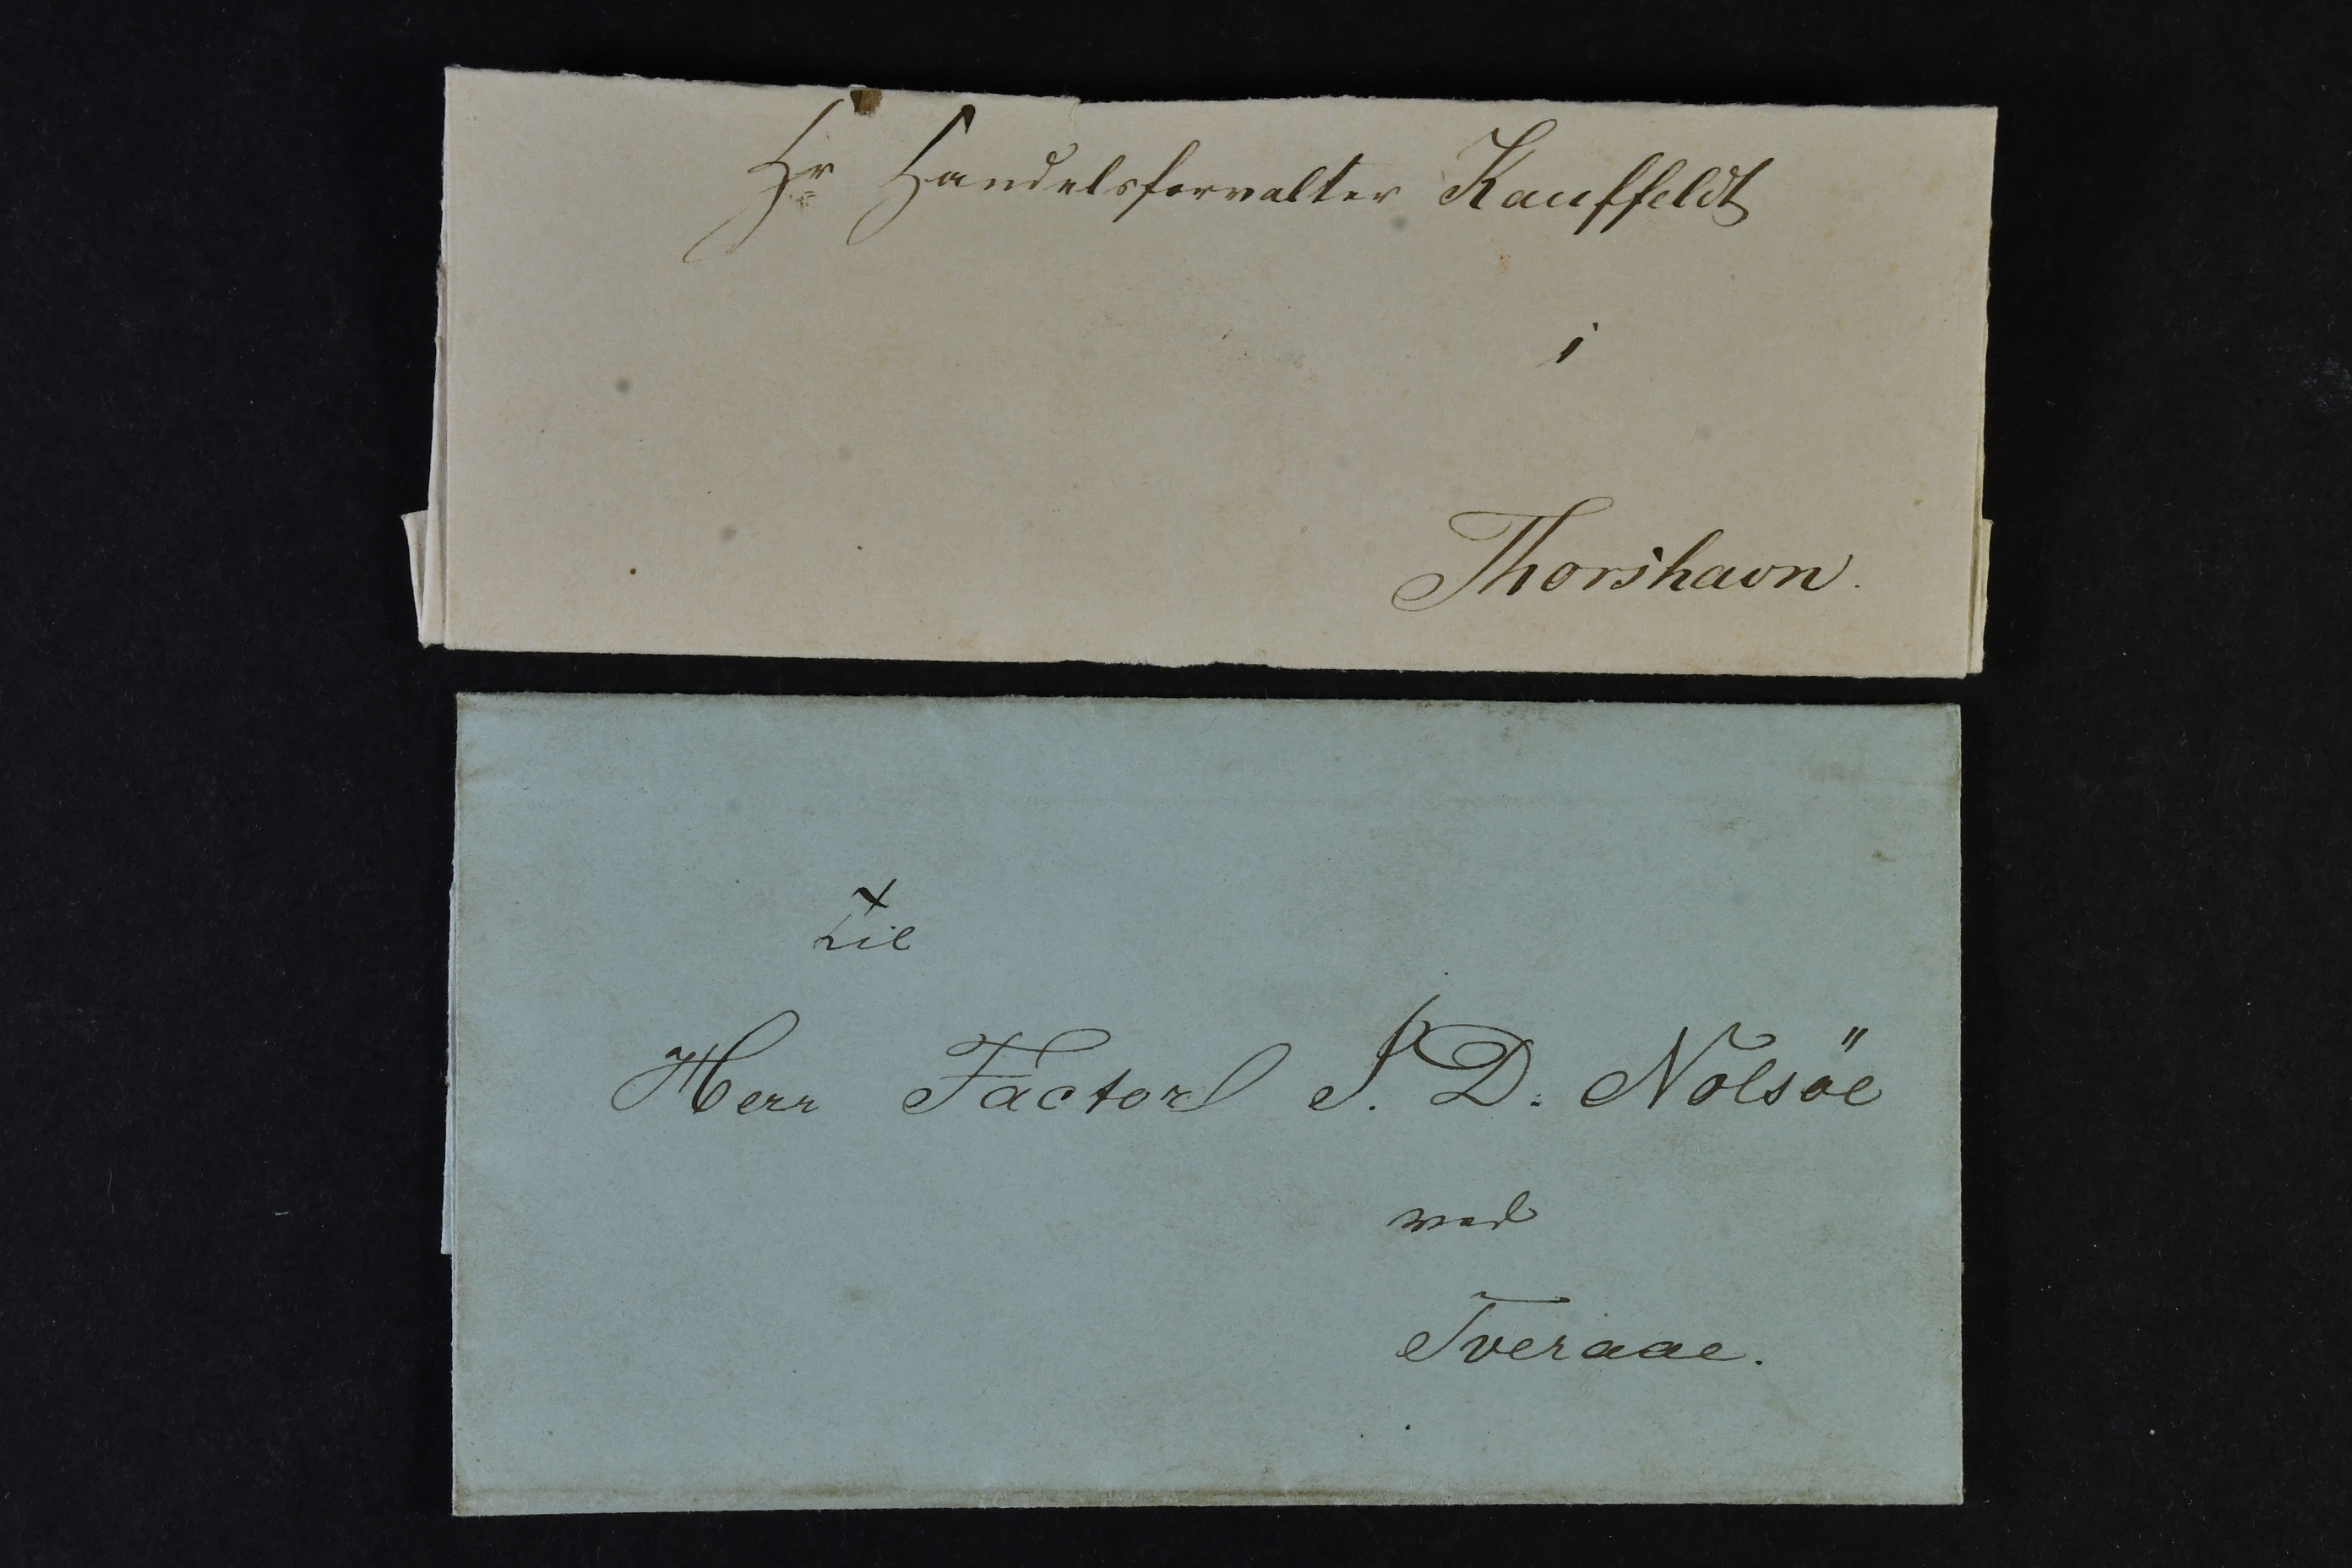 Hr Handelsforvalter Kauffeldt
i
Thorshavn.
x
Til
Herr Factor J. D. Nolsöe
ved
Tveraae.